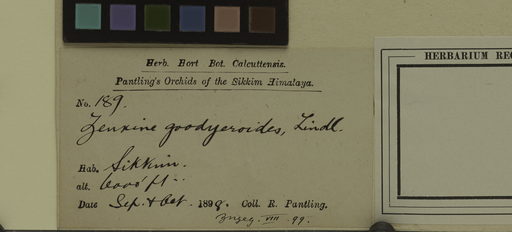 Herb. Hort Bot. Calcuttensis.
Pantling's Orchids of the Sikkim Himalaya.
HERBARIUM
No. 189.
Zeuxine goodyeroides, Lindl.
Hab. Sikkim.
alt. 6000 ft
Date Sep. & Oct. 189 Coll. R. Pantling.
VIII 99.